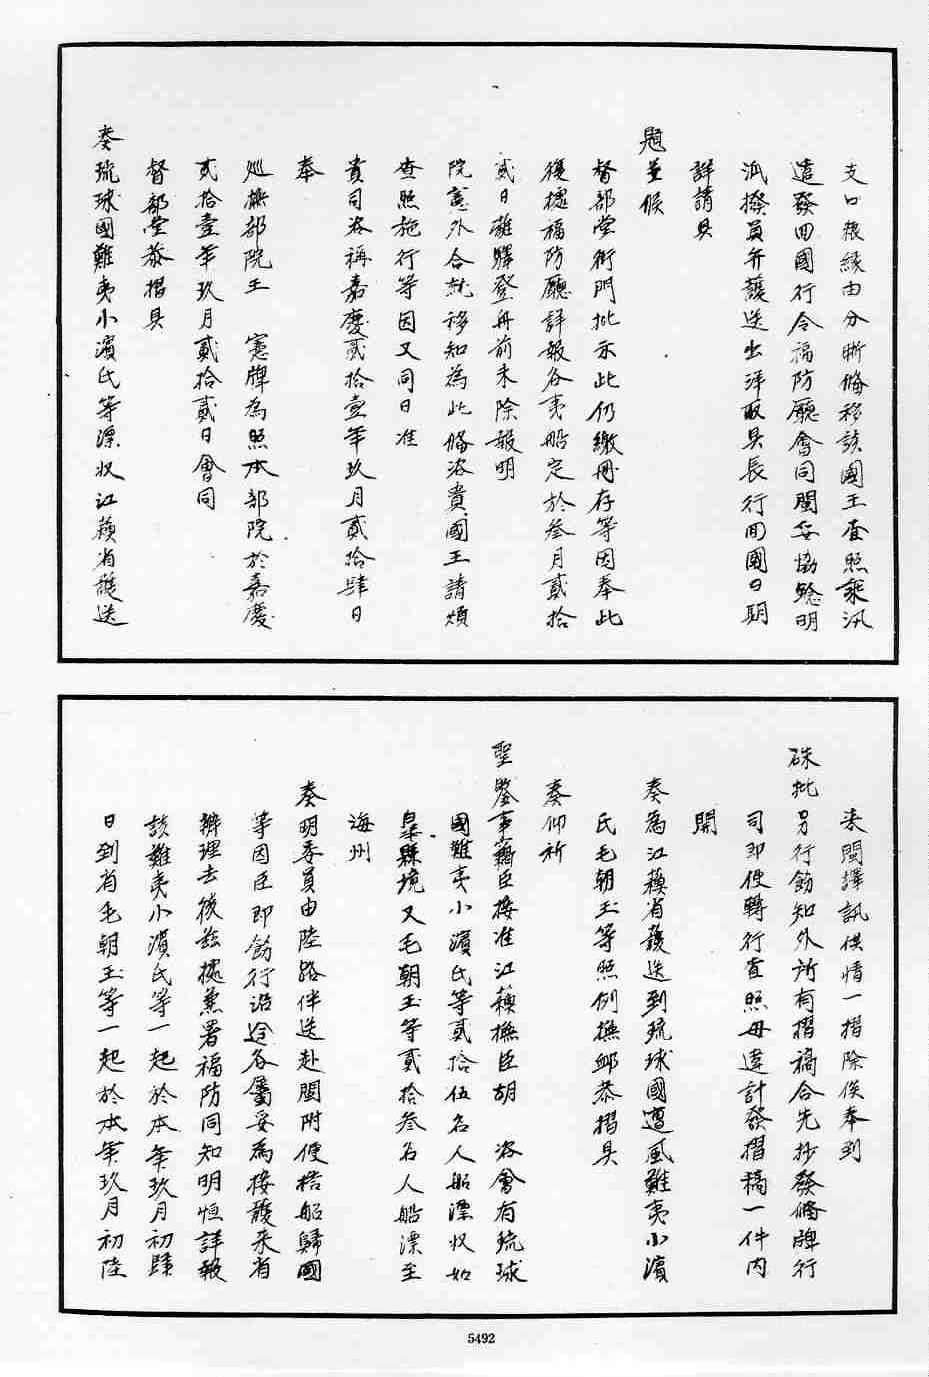 支口粮緣由分晰俻移該國王查照乘汛
遣發回國行令福防廳會同閩安協驗明
派撥員弁護送出洋取具長行回國日期
詳請具
題並候
督部堂衙門批示此仍繳冊存等因奉此
後據福防廳詳報各夷船定於叁月貳拾
貳日離驛登舟前来除報明
院憲外合就移知為此俻咨貴國王請煩
查照施行等因又同日准
貴司咨稱嘉慶貳拾壹年玖月貳拾肆日
奉
巡撫部院王 憲牌為照本部院於嘉慶
貳拾壹年玖月貳拾貳日會同
督部堂恭摺具
奏琉球國難夷小濱氏等漂收江蘓省護送
来閩譯訊供情一摺除俟奉到
硃批另行飭知外所有摺稿合先抄發俻牌行
司即便轉行查照毋違計發摺稿一件内
開
奏為江蘓省護送到琉球國遭風難夷小濱
氏毛朝玉等照例撫卹恭摺具
奏仰祈
聖鑒事竊臣接准江蘓撫臣胡 咨會有琉球
國難夷小濱氏等貳拾伍名人船漂收如
皋縣境又毛朝玉等貳拾叁名人船漂至
海州
奏明委員由陸路伴送赴閩附便搭船歸國
等因臣即飭行沿途各屬妥為接護来省
辦理去後玆據兼署福防同知明恒詳報
該難夷小濱氏等一起於本年玖月初肆
日到省毛朝玉等一起於本年玖月初陸
5492